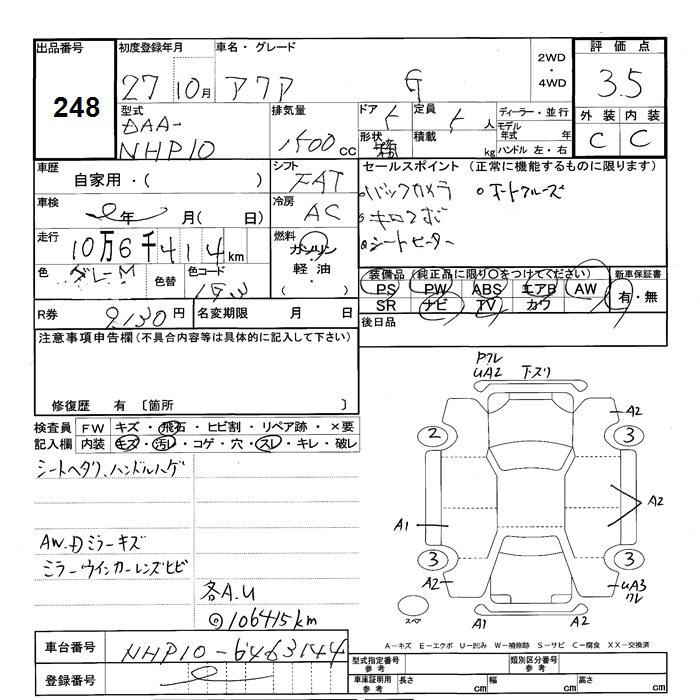 出品番号
248
初度登録年月
27 10月
車名・グレード
アクア G
2WD
・
4WD
評価点
3.5
外装 内装
C C
型式
DAA-
NHP10
排気量
1500cc
ドア 5
定員 5人
形状
積載 kg
ディーラー・並行
モデル年式 年
ハンドル 左・右
車歴
自家用・( )
シフト
FAT
車検
年 月( 日)
冷房
AC
走行
10万6千414km
燃料
ガソリン
軽油
( ・ )
色
グレーM
色替
色コード
セールスポイント (正常に機能するものに限ります)
バックカメラ
オートクルーズ
シートヒーター
装備品 (純正品に限り○をつけてください)
PS PW ABS エアB AW
SR ナビ TV カワ
新車保証書
有・無
R券 9130円
名変期限 月 日
後日品
注意事項申告欄(不具合内容等は具体的に記入して下さい)
修復歴 有 〔箇所 〕
検査員記入欄
FW キズ・飛石・ヒビ割・リペア跡・×要
内装 キズ・汚レ・コゲ・穴・スレ・キレ・破レ
シートヘタリ、ハンドルハゲ
AW.Dミラーキズ
ミラーウインカーレンズヒビ
各A.U
◎106415km
Pワレ
UA2 下スリ
A2
2 3
A1 A2
3 3
A2 UA3
ワレ
スペア A1 A2
A-キズ E-エクボ U-凹み W-補修跡 S-サビ C-腐食 XX-交換済
車台番号 NHP10-6463144
登録番号
型式指定番号 参考
類別区分番号 参考
車庫証明用 参考
長さ cm 幅 cm 高さ cm